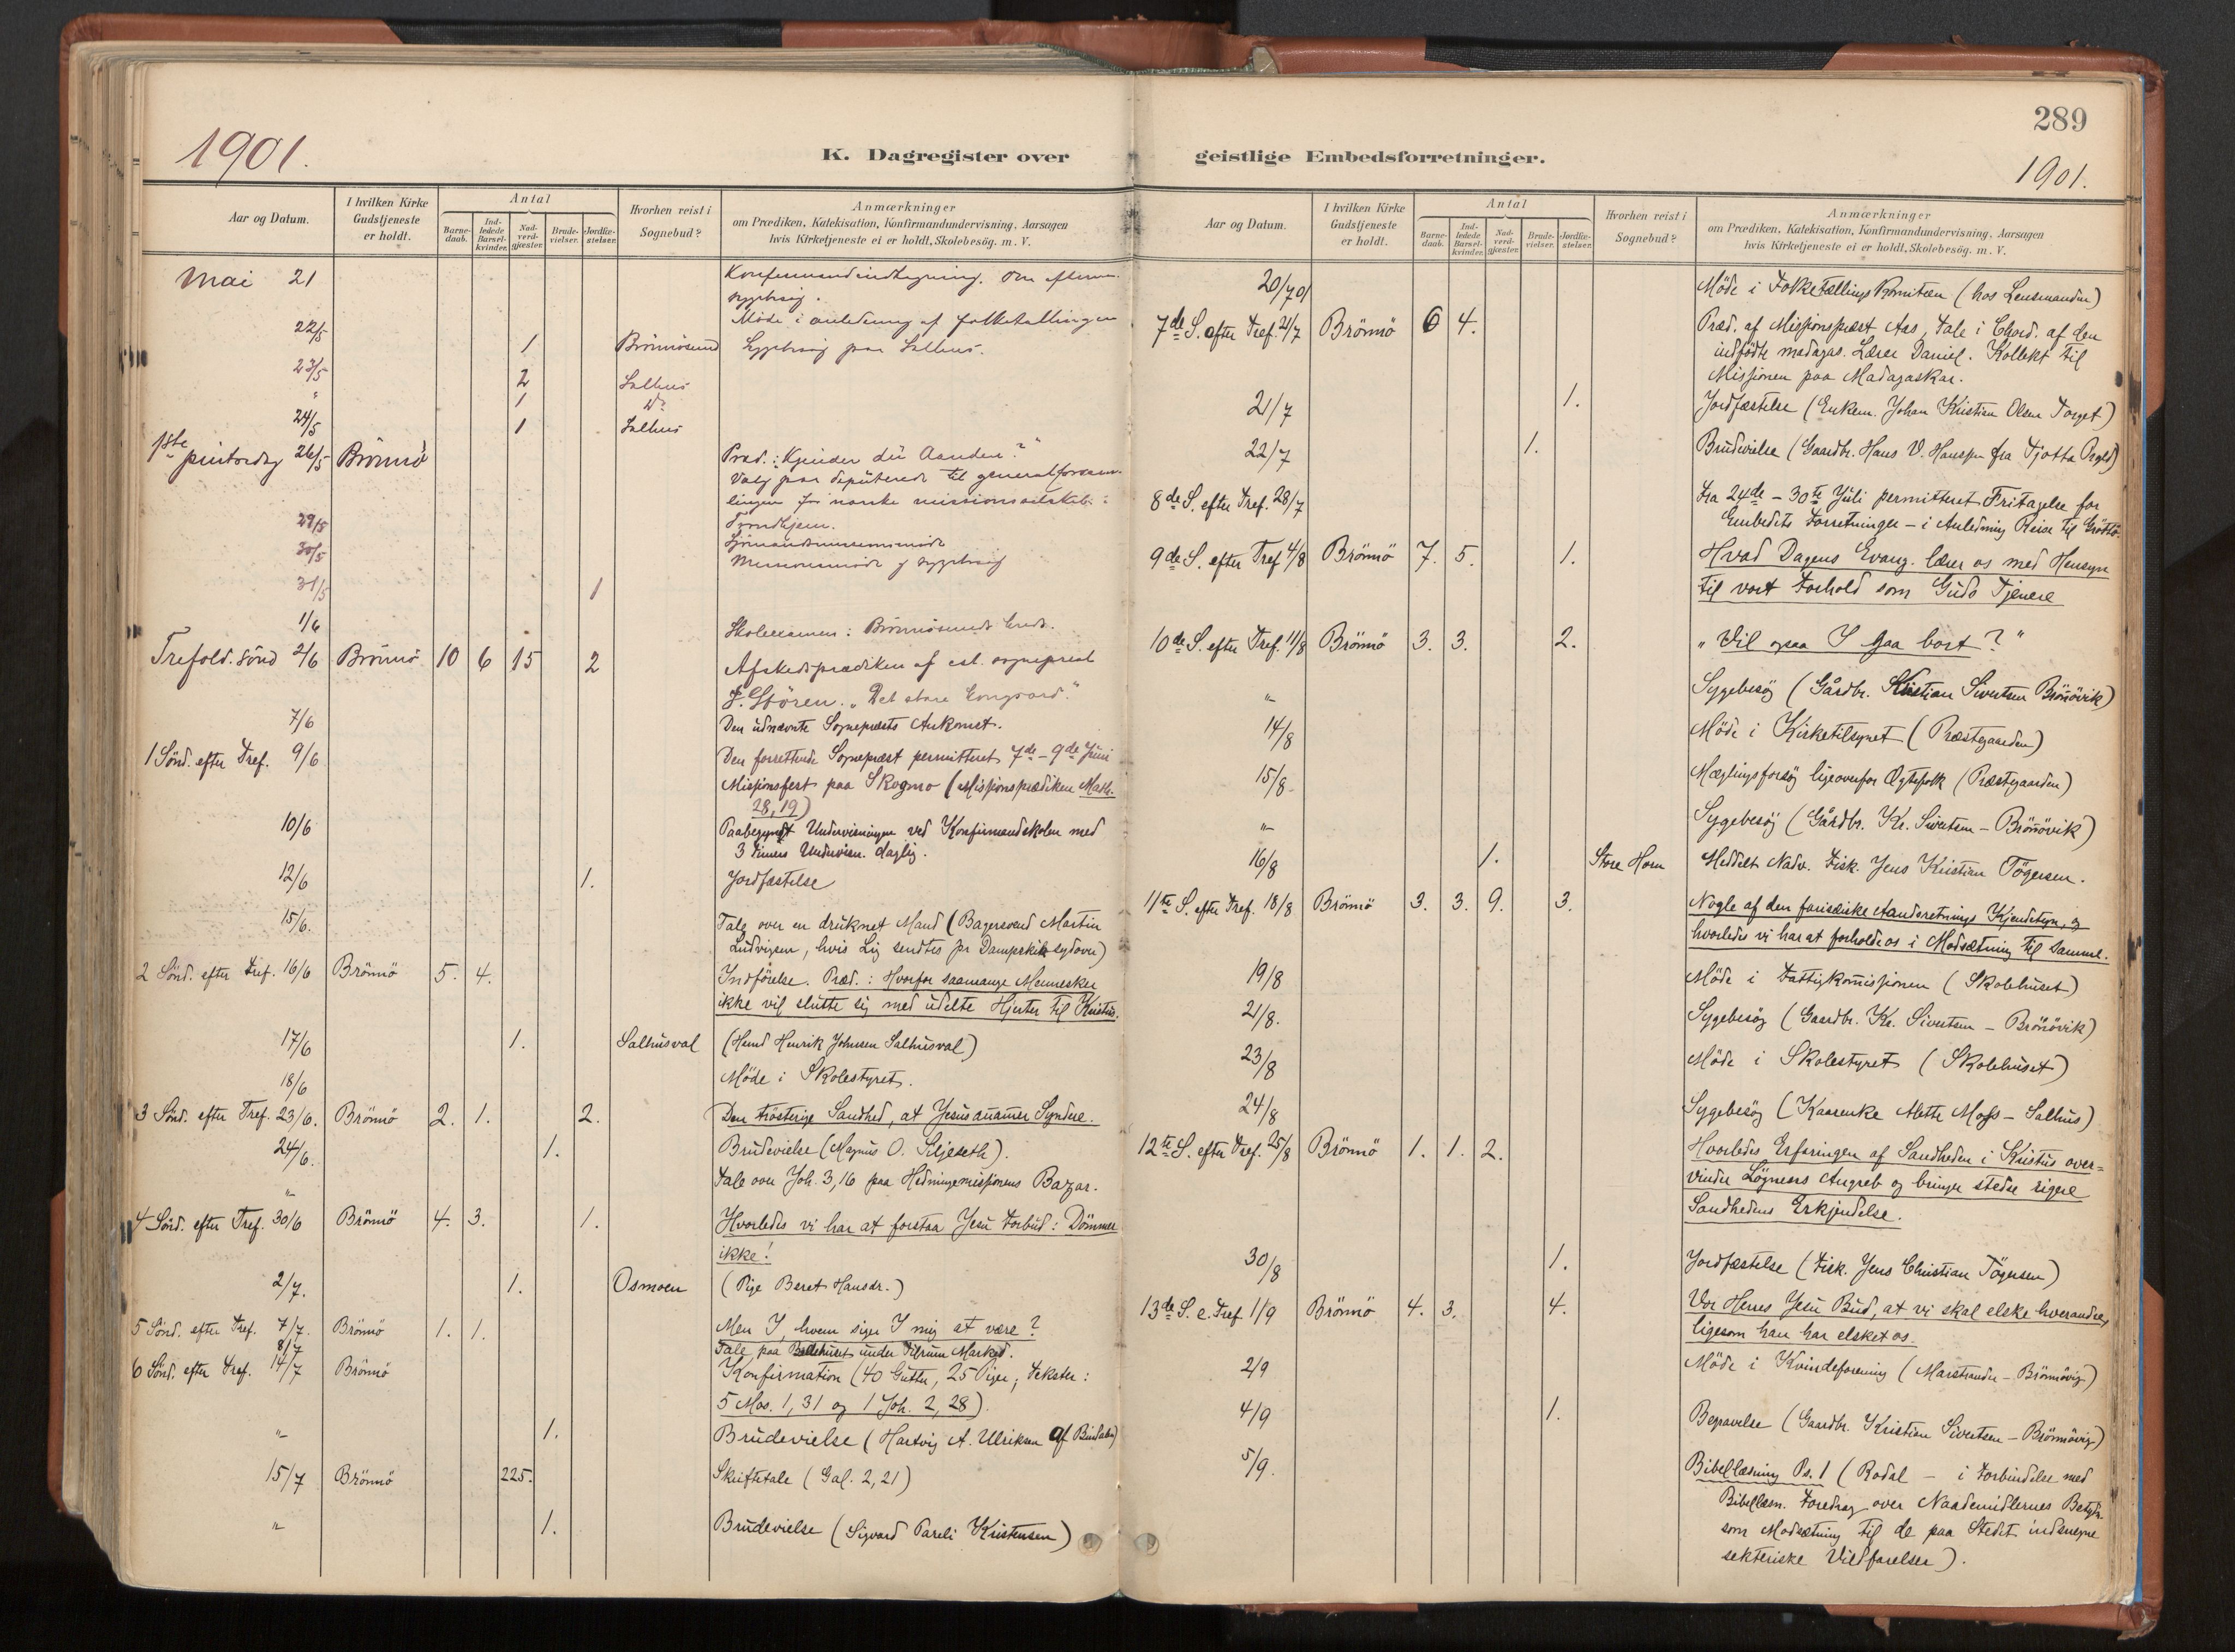 289
1901.
1901.
K. Dagregister over
geistlige Embedsforretninger.
Aar og Datum.
I hvilken Kirke Gudstjeneste er holdt.
Antal
Barne-daab.
Ind-ledede Barsel-kvinder.
Nad-verd-gjæster.
Brude-vielser.
Jordfæ-stelser.
Hvorhen reist i Sognebud?
Anmærkninger
om Prædiken, Katekisation, Konfirmandundervisning, Aarsagen
hvis Kirketjeneste ei er holdt, Skolebesög. m. V.
Mai 21 Konfirmandindtegning. Om efterm.
sygebesøg.
Møde i anledning af folketællingen
22/5 1 Brönnösund Sygebesøg paa Salhus.
23/5 2 Salhus
" 1 do
24/5 1 Salhus
1ste pintsedag 26/5 Brönnö Præd.: "Kjender du Aanden?"
Valg paa deputerede til generalforsam-
lingen for norske missionsselskab i
Trondhjem.
29/5 Sjömandsmissionsmöde
30/5 Missionsmöde og sygebesög
31/5 1
1/6 Skoleexamen: Brönnösunds kreds.
Trefold. sönd 2/6 Brönnö 10 6 15 2 Afskedsprædiken af est. sognepræst
"Det store Ansvar."
7/6 Den udnævnte Sognepræsts Ankomst.
1 Sönd. efter Tref. 9/6 Den forrettende Sognepræst permitteret 7de - 9de Juni
Missjonsfest paa Skogmo (Missjonsprædiken Math.
28,19)
10/6 Paabegyndt Undervisningen ved Konfirmandskolen med
3 Timers Undervisn. daglig.
12/6 1. Jordfæstelse
15/6. Tale over en druknet Mand (Bagersvend Martin
Ludvigsen, hvis Lig sendtes pr Dampskib sydover)
2 Sönd. efter Tref. 16/6 Brönnö 5. 4. Indförelse. Præd.: Hvorfor saamange Mennesker
ikke vil slutte sig med udelte Hjerter til Kristus.
17/6 1. Salhusval (Mand Henrik Johnsen Salhusval)
18/6 Möde i Skolestyret.
3 Sönd. efter Tref. 23/6. Brönnö 2. 1. 2. Den trösterige Sandhed, at Jesus annamer Syndere.
24/6. 1. Brudevielse (Magnus O. Siljeseth).
"- Tale over Joh. 3,16 paa Hedningemissjonens Bazar.
4 Sönd. efter Tref. 30/6 Brönnö 4. 3. 1. Hvorledes vi har at forstaa Jesu Forbud: Dömmer
ikke!
2/7. 1. Osmoen (Pige Beret Hansdr.)
5 Sönd. efter Tref. 7/7. Brönnö 1. 1. Men I, hvem siger I mig at være?
8/7 Tale paa Bedehuset under Tilrum Marked.
6 Sönd. efter Tref. 14/7 Brönnö Konfirmation (40 Gutter, 25 Piger; Tekster:
5 Mos. 1,31 og 1 Joh. 2,28).
"- 1. Brudevielse (Hartvig A. Ulriksen af Bindalen)
15/7 Brönnö 225. Skriftetale (Gal. 2,21)
" 1. Brudevielse (Sigvard Pareli Kristensen)
Aar og Datum.
I hvilken Kirke Gudstjeneste er holdt.
Antal
Barne-daab.
Ind-ledede Barsel-kvinder.
Nad-verd-gjæster.
Brude-vielser.
Jordfæ-stelser.
Hvorhen reist i Sognebud?
Anmærkninger
om Prædiken, Katekisation, Konfirmandundervisning, Aarsagen
hvis Kirketjeneste ei er holdt, Skolebesög. m. V.
20/7 01 Möde i Folketællings Komiteen (hos Lensmanden)
7de S. efter Tref. 21/7 Brönnö 6 4. Præd. af Missjonspræst Aas, Tale i Chord. af den
indfödte madagas. Lærer Daniel. Kollekt til
Missjonen paa Madagaskar.
21/7 1. Jordfæstelse (Enkem. Johan Kristian Olsen Torget)
22/7 1. Brudevielse (Gaardbr. Hans V. Hanssen fra Tjotta Prgld)
8de S. efter Tref. 28/7 Fra 24de - 30te Juli permitteret Fritagelse for
Embedets Forretninger - i Anledning Reise til Gröttö.
9de S. efter Tref 4/8 Brönnö 7. 5. 1. Hvad Dagens Evang. lærer os med Hensyn
til vort Forhold som Guds Tjenere
10de S. efter Tref. 11/8 Brönnö 3. 3. 2. "Vil ogsaa I gaa bort?"
"- Sygebesög (Gårdbr. Kristian Sivertsen Brönövik)
14/8 Möde i Kirketilsynet (Præstgaarden)
15/8- Mæglingsforsög ligeoverfor Ægtefolk (Præstgaarden)
"- Sygebesög (Gårdbr. Kr. Sivertsen - Brönövik)
16/8 1. Store Horn Meddelt Nadv. Fisk. Jens Kristian Tögersen.
11te S. efter Tref. 18/8 Brönnö 3. 3. 9. 3. Nogle af den farisæiske Aandsretnings Kjendetegn, og
hvorledes vi har at forholde os i Modsætning til samme.
19/8 Möde i Fattigkomissjonen (Skolehuset)
21/8. Sygebesög (Gaardbr. Kr. Sivertsen - Brönövik)
23/8 Möde i Skolestyret (Skolehuset)
24/8 Sygebesög (Kaarenke Alette Moss - Salhus)
12te S. efter Tref. 25/8 Brönnö 1. 1. 2. Hvorledes Erfaringen af Sandheden i Kristus over=
vinder Lögnens Angreb og bringer stedse rigere
Sandhedens Erkjendelse.
30/8 1. Jordfæstelse (Fisk. Jens Christian Tögersen)
13de S. e. Tref 1/9 Brönnö 4. 3. 4. Vor Herres Jesu Bud, at vi skal elske hverandre,
ligesom han har elsket os.
2/9 Möde i Kvindeforening (Marstrander - Brönnövig)
4/9 1. Begravelse (Gaardbr. Kristian Sivertsen - Brönnövig)
5/9. Bibellæsning Ps. 1 (Rodal - i Forbindelse med
Bibellæsn. Foredrag over Naademidlernes Betydn.
som Modsætning til de paa Stedet indsnegne
sekteriske Vildfarelser).